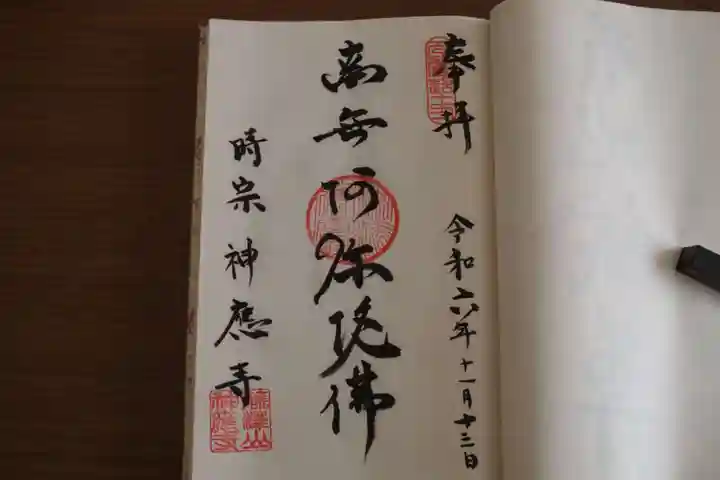 奉拝
令和六年十一月十三日
南無阿弥陀佛
時宗 神應寺